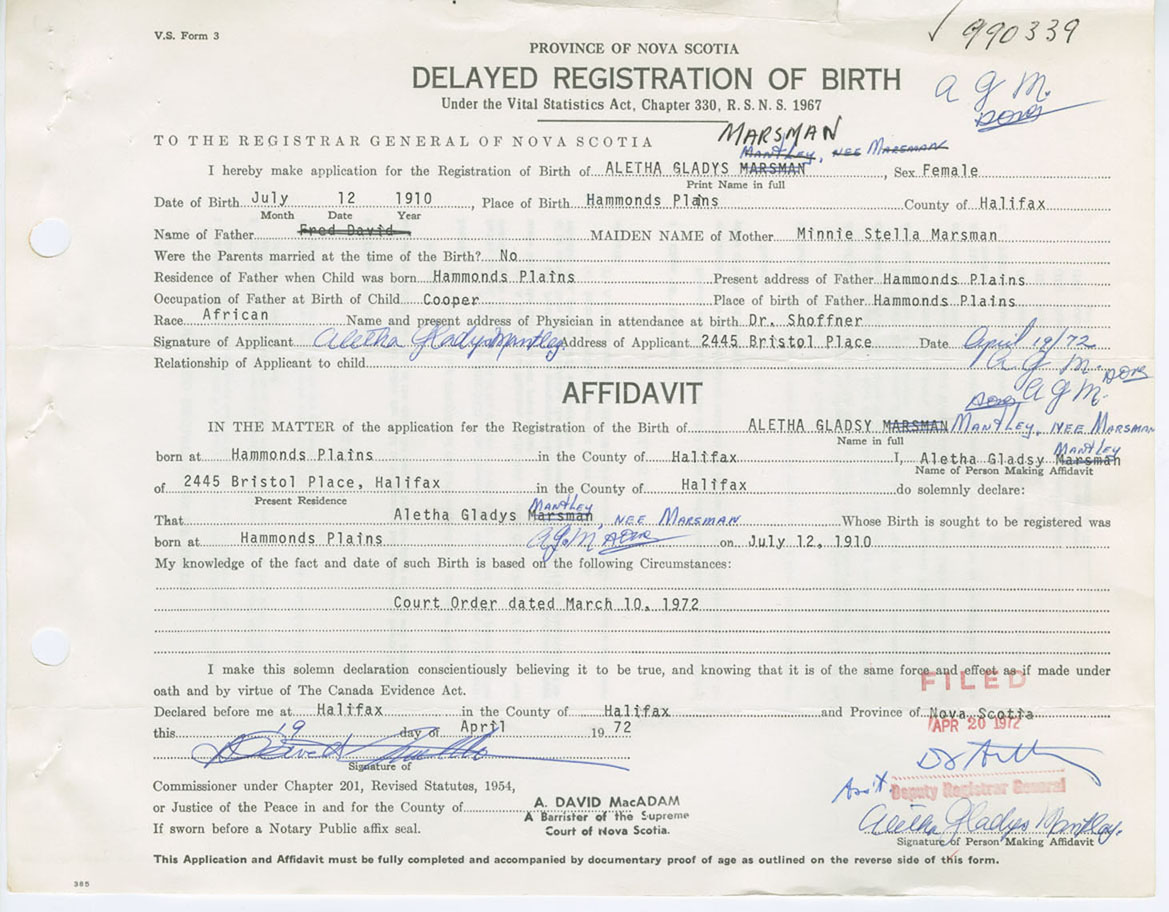 V.S. Form 3
✓ 990339
PROVINCE OF NOVA SCOTIA
DELAYED REGISTRATION OF BIRTH
A G M.
Under the Vital Statistics Act, Chapter 330, R.S.N.S. 1967
TO THE REGISTRAR GENERAL OF NOVA SCOTIA
MARSMAN
MANTLEY, NEE MARSMAN
I hereby make application for the Registration of Birth of ALETHA GLADYS MARSMAN, Sex Female
Print Name in full
Date of Birth July 12 1910, Place of Birth Hammonds Plains County of Halifax
Month Date Year
Name of Father Fred David MAIDEN NAME of Mother Minnie Stella Marsman
Were the Parents married at the time of the Birth? No
Residence of Father when Child was born Hammonds Plains Present address of Father Hammonds Plains
Occupation of Father at Birth of Child Cooper Place of birth of Father Hammonds Plains
Race African Name and present address of Physician in attendance at birth Dr. Shoffner
Signature of Applicant Aletha Gladys Mantley Address of Applicant 2445 Bristol Place Date April 19/72
A G M.
Relationship of Applicant to child
AFFIDAVIT
A G M.
IN THE MATTER of the application for the Registration of the Birth of ALETHA GLADSY MARSMAN MANTLEY, NEE MARSMAN
Name in full
MANTLEY
born at Hammonds Plains in the County of Halifax I, Aletha Gladsy Marsman
Name of Person Making Affidavit
of 2445 Bristol Place, Halifax in the County of Halifax do solemnly declare:
Present Residence
MANTLEY
That Aletha Gladys Marsman, NEE MARSMAN Whose Birth is sought to be registered was
born at Hammonds Plains AGM on July 12, 1910
My knowledge of the fact and date of such Birth is based on the following Circumstances:
Court Order dated March 10, 1972
I make this solemn declaration conscientiously believing it to be true, and knowing that it is of the same force and effect as if made under
oath and by virtue of The Canada Evidence Act.
FILED
Declared before me at Halifax in the County of Halifax and Province of Nova Scotia
APR 20 1972
this 19 day of April 1972
Signature of
Commissioner under Chapter 201, Revised Statutes, 1954,
Ass't Deputy Registrar General
or Justice of the Peace in and for the County of
A. DAVID MacADAM
A Barrister of the Supreme
Court of Nova Scotia.
Aletha Gladys Mantley.
If sworn before a Notary Public affix seal.
Signature of Person Making Affidavit
This Application and Affidavit must be fully completed and accompanied by documentary proof of age as outlined on the reverse side of this form.
385